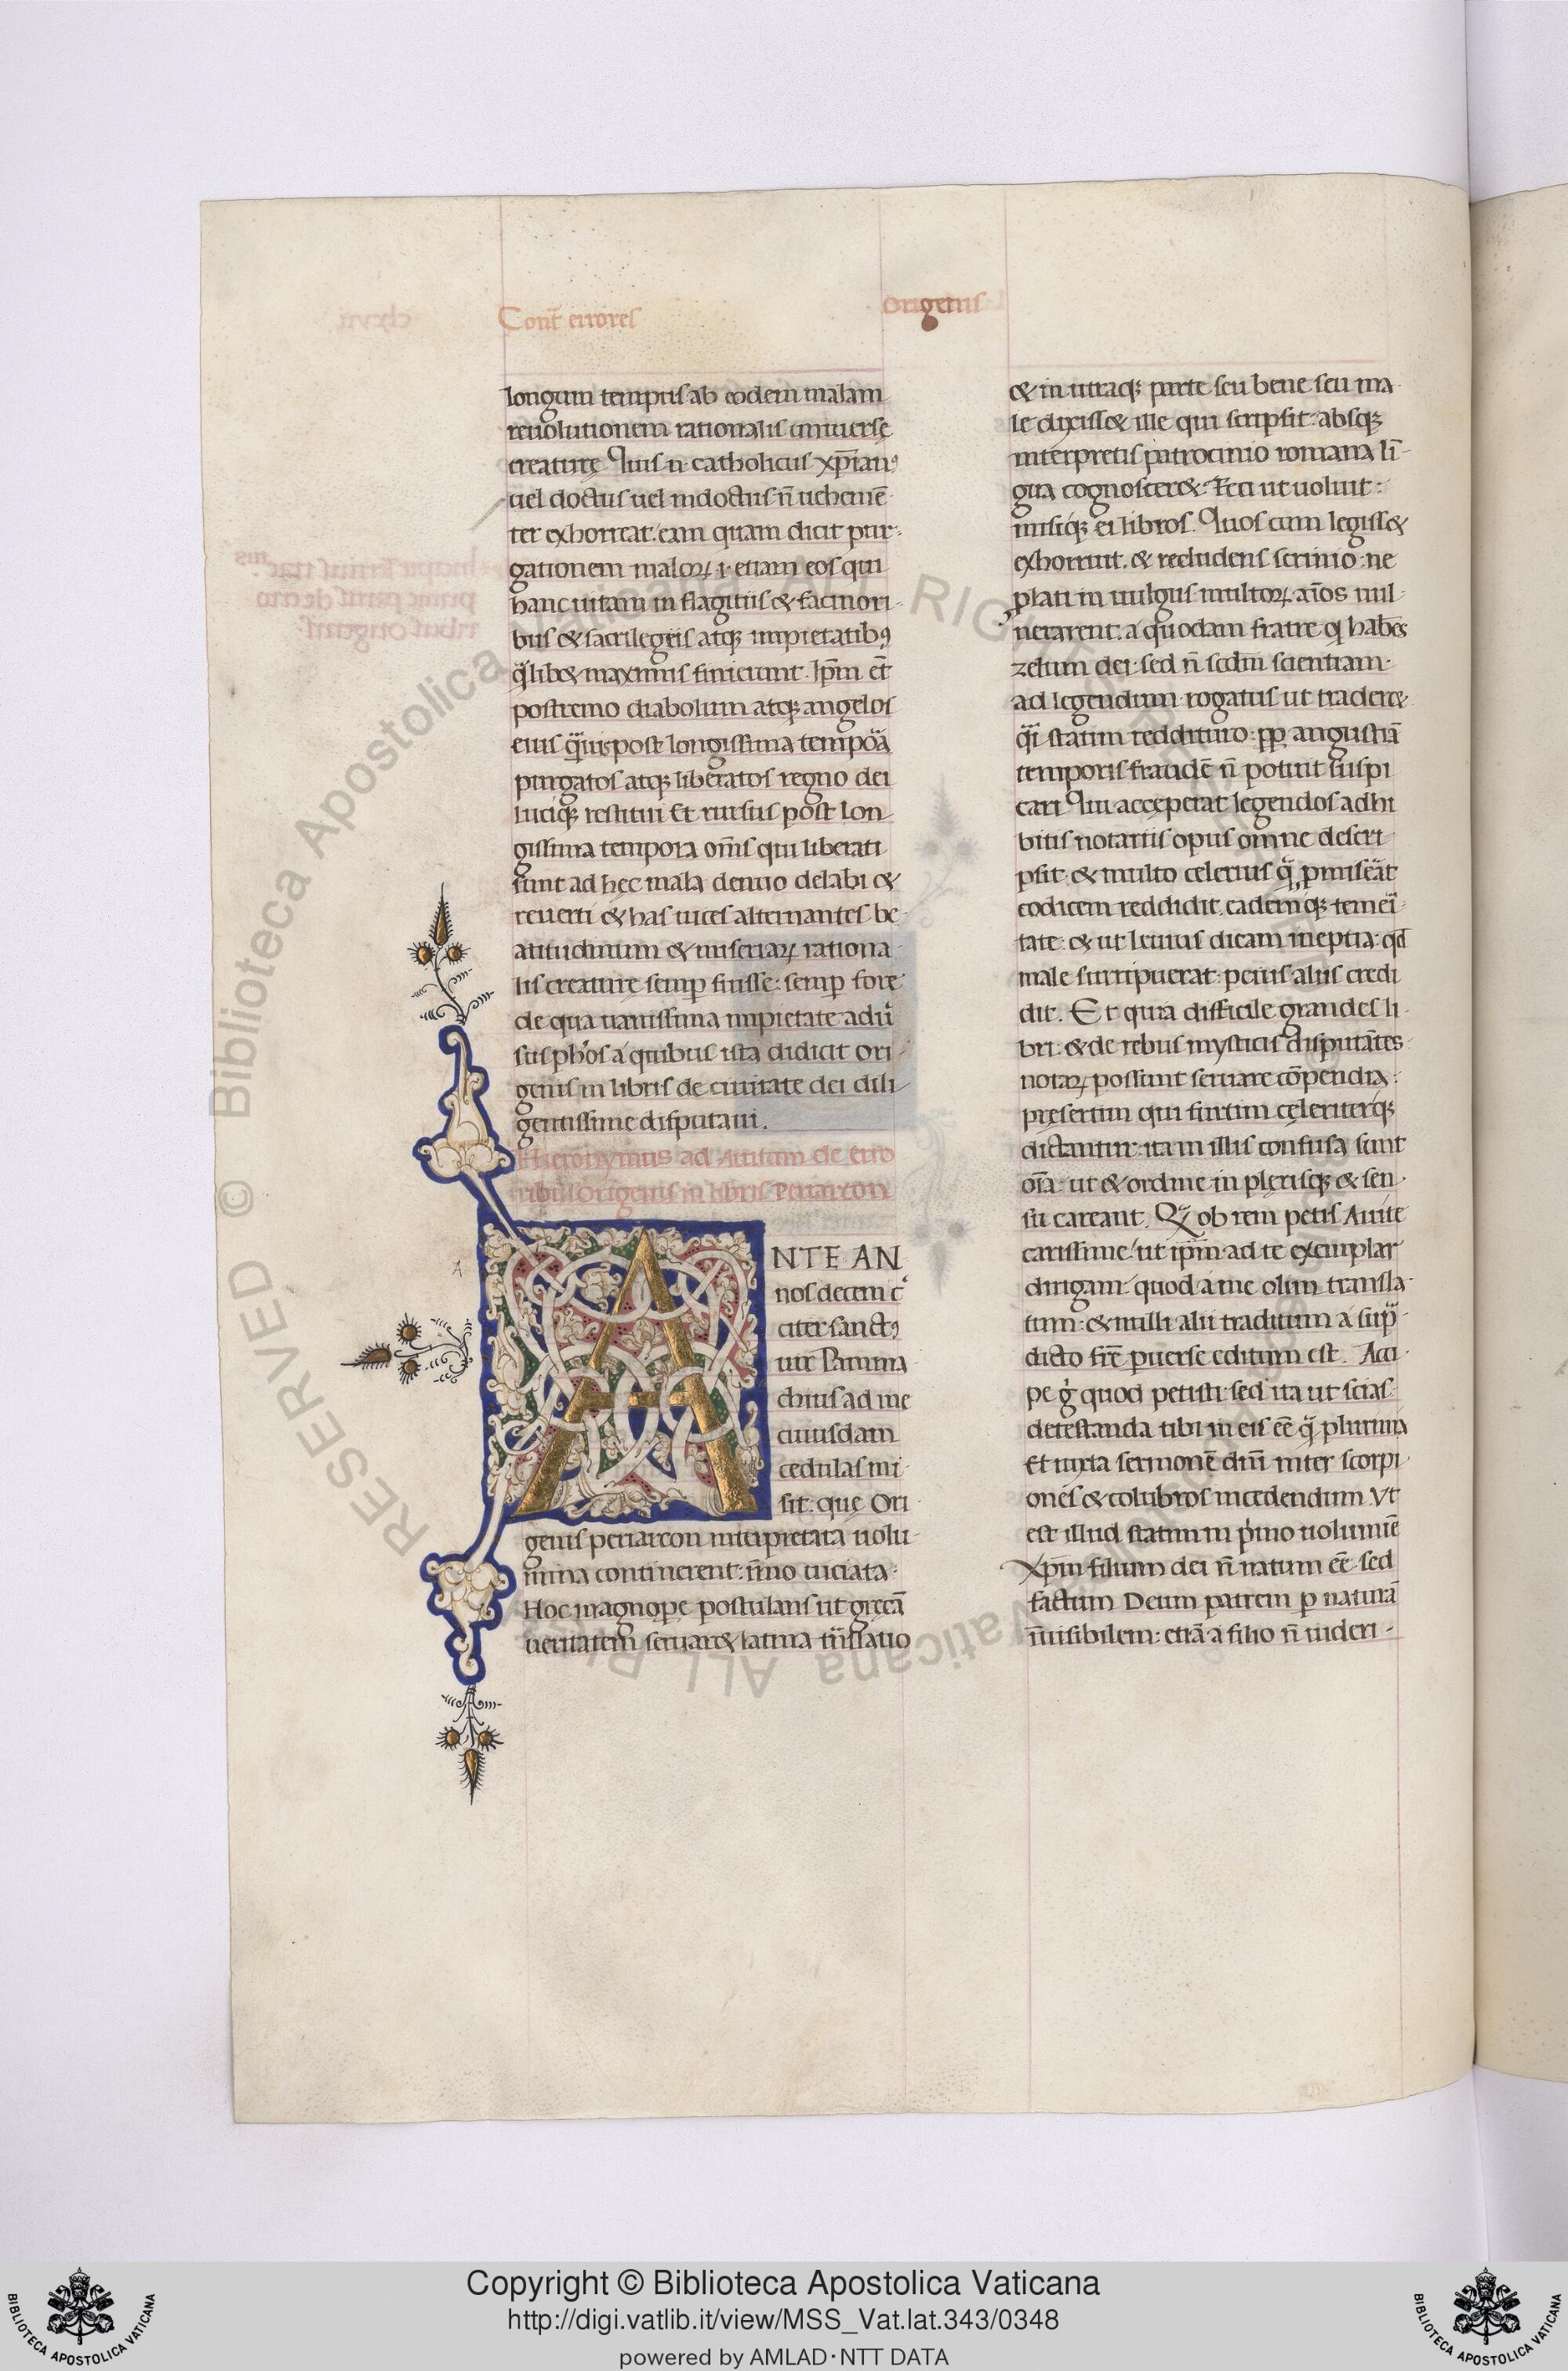 Cont̄ errores
Origenis
longum tempus ab eodem malam
reuolutionem rationalis uniuersę
creaturę Quis n̄ catholicus xp̄ianꝰ
uel doctus uel indoctus n̄ uehemē
ter exhorreat. eam quam dicit pur-
gationem maloꝝ .i. etiam eos qui
hanc uitam in flagitiis & facinori-
bus & sacrilegeis atqꝫ impietatibꝰ
q̈libet maximis finierunt. Ip̄m et̄
postremo diabolum atqꝫ angelos
eius q̈uis post longissima tempoa̎
purgatos atqꝫ liberatos regno dei
lucisqꝫ restitui Et rursus post lon
gissima tempora om̄s qui liberati
sunt ad hęc mala denuo delabi &
reuerti & has uices alternantes be-
atitudinum & miseriaꝝ rationa-
lis creaturę semꝑ fuisse: semꝑ fore
de qua uanissima impietate aduͥ
sus ph̄os a quibus ista didicit Ori-
genis in libris de ciuitate dei dili-
gentissime disputaui.
Hieronymus ad Auitum de erro
ribus Origenis in libris Periarcon
A
NTE AN
nos decem c̉
citer sanctꝰ
uir Pamma
chius ad me
cuiusdam
cedulas mi-
sit: quę Ori-
genis periarcon interpretata uolu-
mina continerent: īmo uiciata.
Hoc magnopere postulans ut gręcā
ueritatem seruar& latina trn̄slatio
& in utraqꝫ parte seu bene seu ma
le dixiss& ille qui scripsit: absqꝫ
interpretis patrocinio romana li-
gua cognoscer&. Feci ut uoluit:
misiqꝫ ei libros. Quos cum legiss&
exhorruit. & recludens scrinio. ne
ꝓlati in uulgus multoꝝ aīos uul-
nerarent. a quodam fratre qͥ habēs
zelum dei. sed n̄ scd̄m scientiam.
ad legendum rogatus ut trader&.
q̈i statim reddituro: ꝓꝑ angustiā
temporis fraudē n̄ potuit suspi
cari Qui acceperat legendos adhi
bitis notariis opus omne descri-
psit. & multo celerius q̈̄ ꝓmiseāt
codicem reddidit. eademqꝫ temeͥ-
tate: & ut leuius dicam ineptia. qđ
male surripuerat. peius aliis credi
dit. Et quia difficile grandes li-
bri. & de rebus mysticis disputātes.
notaꝝ possunt seruare cōpendia:
pręsertim qui furtim celeriterqꝫ
dictantur. ita in illis confusa sunt
oīa: ut & ordine in plerisqꝫ & sen-
su careant. Qͣ ob rem petis Auite
carissime. ut ip̄m ad te exemplar
dirigam. quod a me olim transla-
tum: & nulli alii traditum a suꝑͣ-
dicto fr̄e ꝑuerse editum est. Acci-
pe g̊ quod petisti. sed ita ut scias
detestanda tibi in eis eē q̈̄ plurima
Et iuxta sermonē dnī inter scorpi-
ones & colubros incedendum. Vt
est illud statim in pͥmo uoluminē
Xp̄m filium dei n̄ natum eē. sed
factum Deum patrem ꝑ naturā
īuisibilem: etiā a filio n̄ uideri-
Copyright © Biblioteca Apostolica Vaticana
http://digi.vatlib.it/view/MSS_Vat.lat.343/0348
powered by AMLAD·NTT DATA